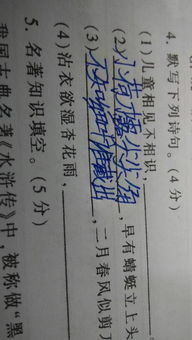 4. 默写下列诗句。(4分)
(1)儿童相见不相识,
(2)小荷才露尖尖角,早有蜻蜓立上头
(3)不知细叶谁裁出,二月春风似剪
(4)沾衣欲湿杏花雨,
5. 名著知识填空。(5分)
我国古典名著《水浒传》中,被称做“黑